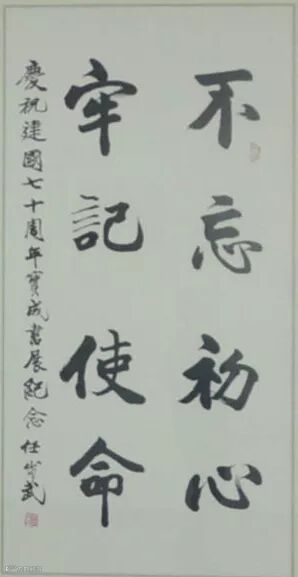 不忘初心
牢記使命
慶祝建國七十周年寶成書展紀念任步武